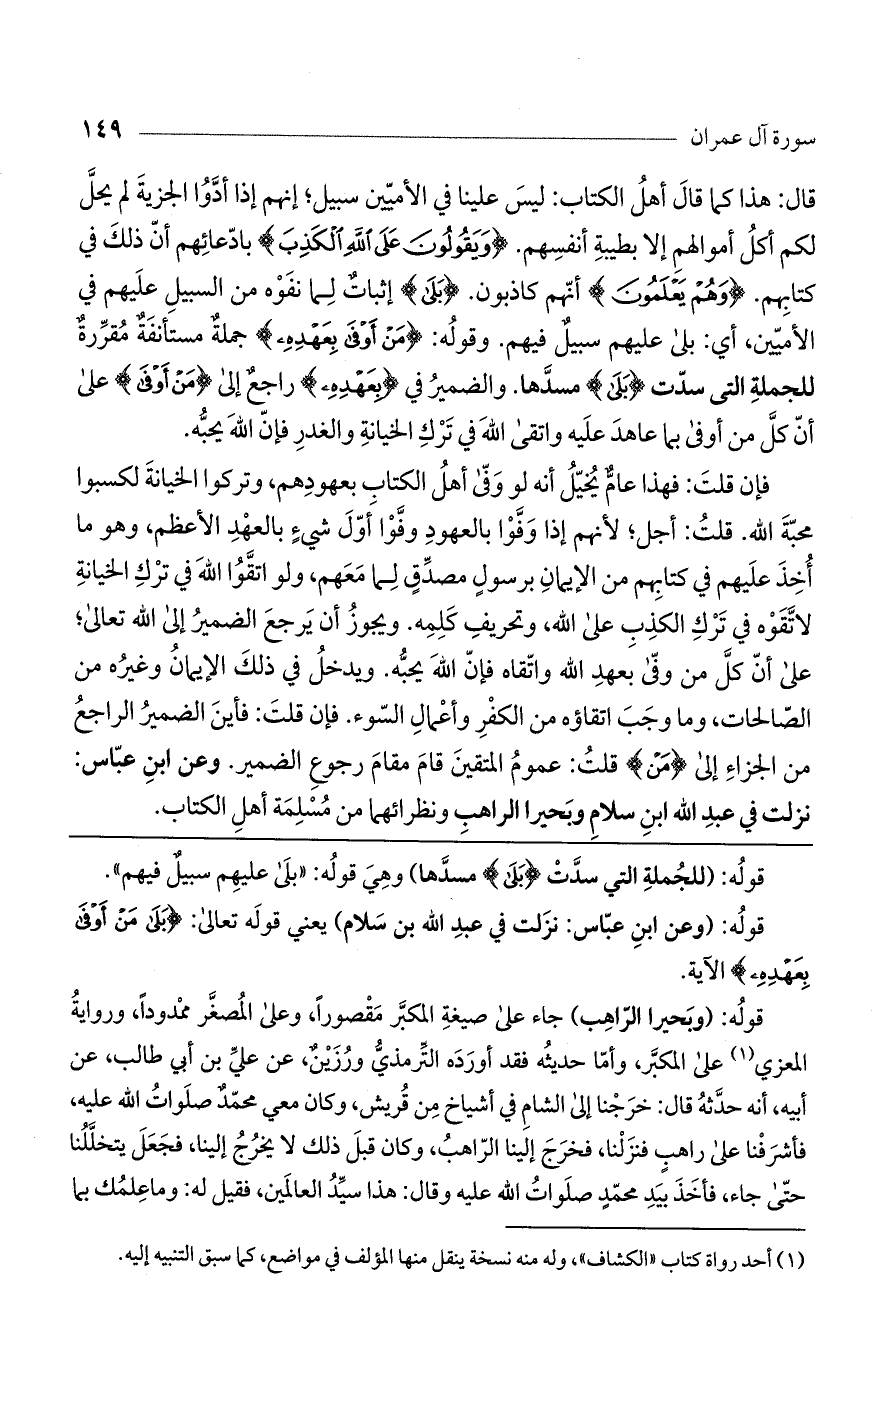 سورة آل عمران ١٤٩
قال: هذا كما قالَ أهلُ الكتاب: ليسَ علينا في الأميّين سبيل؛ إنهم إذا أدَّوُا الجزيةَ لم يحلَّ
لكم أكلُ أموالهم إلا بطيبةِ أنفسِهم. ﴿وَيَقُولُونَ عَلَى ٱللَّهِ ٱلْكَذِبَ﴾ بادّعائِهم أنّ ذلكَ في
كتابِهم. ﴿وَهُمْ يَعْلَمُونَ﴾ أنّهم كاذبون. ﴿بَلَىٰ﴾ إثباتٌ لِـما نفَوْه من السبيلِ علَيهم في
الأميّين، أي: بلىٰ عليهم سبيلٌ فيهم. وقولُه: ﴿مَنْ أَوْفَىٰ بِعَهْدِهِۦ﴾ جملةٌ مستأنفةٌ مُقرِّرةٌ
للجملةِ التي سدّت ﴿بَلَىٰ﴾ مسدَّها. والضميرُ في ﴿بِعَهْدِهِۦ﴾ راجعٌ إلىٰ ﴿مَنْ أَوْفَىٰ﴾ علىٰ
أنّ كلَّ من أوفىٰ بما عاهدَ علَيه واتقىٰ اللهَ في تَرْكِ الخيانةِ والغدرِ فإنّ اللهَ يحبُّه.
فإن قلتَ: فهذا عامٌّ يُخيّلُ أنه لو وَفّىٰ أهلُ الكتابِ بعهودِهم، وتركوا الخيانةَ لكسبوا
محبّةَ الله. قلتُ: أجل؛ لأنهم إذا وَفَّوْا بالعهودِ وفَّوْا أوّلَ شيءٍ بالعهْدِ الأعظم، وهو ما
أُخِذَ علَيهم في كتابِهم من الإيمانِ برسولٍ مصدِّقٍ لِـما مَعَهم، ولو اتقَّوُا اللهَ في ترْكِ الخيانةِ
لاتَّقَوْه في تَرْكِ الكذِبِ علىٰ الله، وتحريفِ كَلِمِه. ويجوزُ أن يَرجعَ الضميرُ إلىٰ الله تعالىٰ؛
علىٰ أنّ كلَّ من وفّىٰ بعهدِ الله واتّقاه فإنّ اللهَ يحبُّه. ويدخلُ في ذلكَ الإيمانُ وغيرُه من
الصّالحات، وما وجَبَ اتقاؤه من الكفْرِ وأعْمالِ السّوء. فإن قلتَ: فأينَ الضميرُ الراجعُ
من الجزاءِ إلىٰ ﴿مَنْ﴾ قلتُ: عمومُ المتقينَ قامَ مقامَ رجوعِ الضمير. وعن ابنِ عبّاس:
نزلت في عبدِ الله ابنِ سلامٍ وبَحيرا الراهبِ ونظرائهما من مُسْلِمَة أهلِ الكتاب.
قولُه: (للجُملةِ التي سدَّتْ ﴿بَلَىٰ﴾ مسدَّها) وهِيَ قولُه: «بلَىٰ عليهِم سبيلٌ فيهم».
قولُه: (وعن ابنِ عبّاس: نزَلت في عبدِ الله بن سَلام) يعني قولَه تعالىٰ: ﴿بَلَىٰ مَنْ أَوْفَىٰ
بِعَهْدِهِۦ﴾ الآية.
قولُه: (وبَحيرا الرّاهِب) جاء علىٰ صيغةِ المكبَّر مَقْصوراً، وعلىٰ المُصغَّر ممْدوداً، وروايةُ
المعزي(١) علىٰ المكبَّر، وأمّا حديثُه فقد أورَدَه التِّرمذيُّ ورُزَيْنٌ، عن عليِّ بن أبي طالب، عن
أبيه، أنه حدَّثهُ قال: خرَجْنا إلىٰ الشامِ في أشياخٍ مِن قُريش، وكان معي محمّدٌ صلَواتُ الله عليه،
فأشرَفْنا علىٰ راهبٍ فنزَلْنا، فخرَجَ إلينا الرّاهبُ، وكان قبلَ ذلك لا يخرُجُ إلينا، فجَعَلَ يتخلَّلُنا
حتّىٰ جاء، فأخَذَ بيَدِ محمّدٍ صلَواتُ الله عليه وقال: هذا سيِّدُ العالَمين، فقيل له: وماعِلمُك بما
(١) أحد رواة كتاب «الكشاف»، وله منه نسخة ينقل منها المؤلف في مواضع، كما سبق التنبيه إليه.